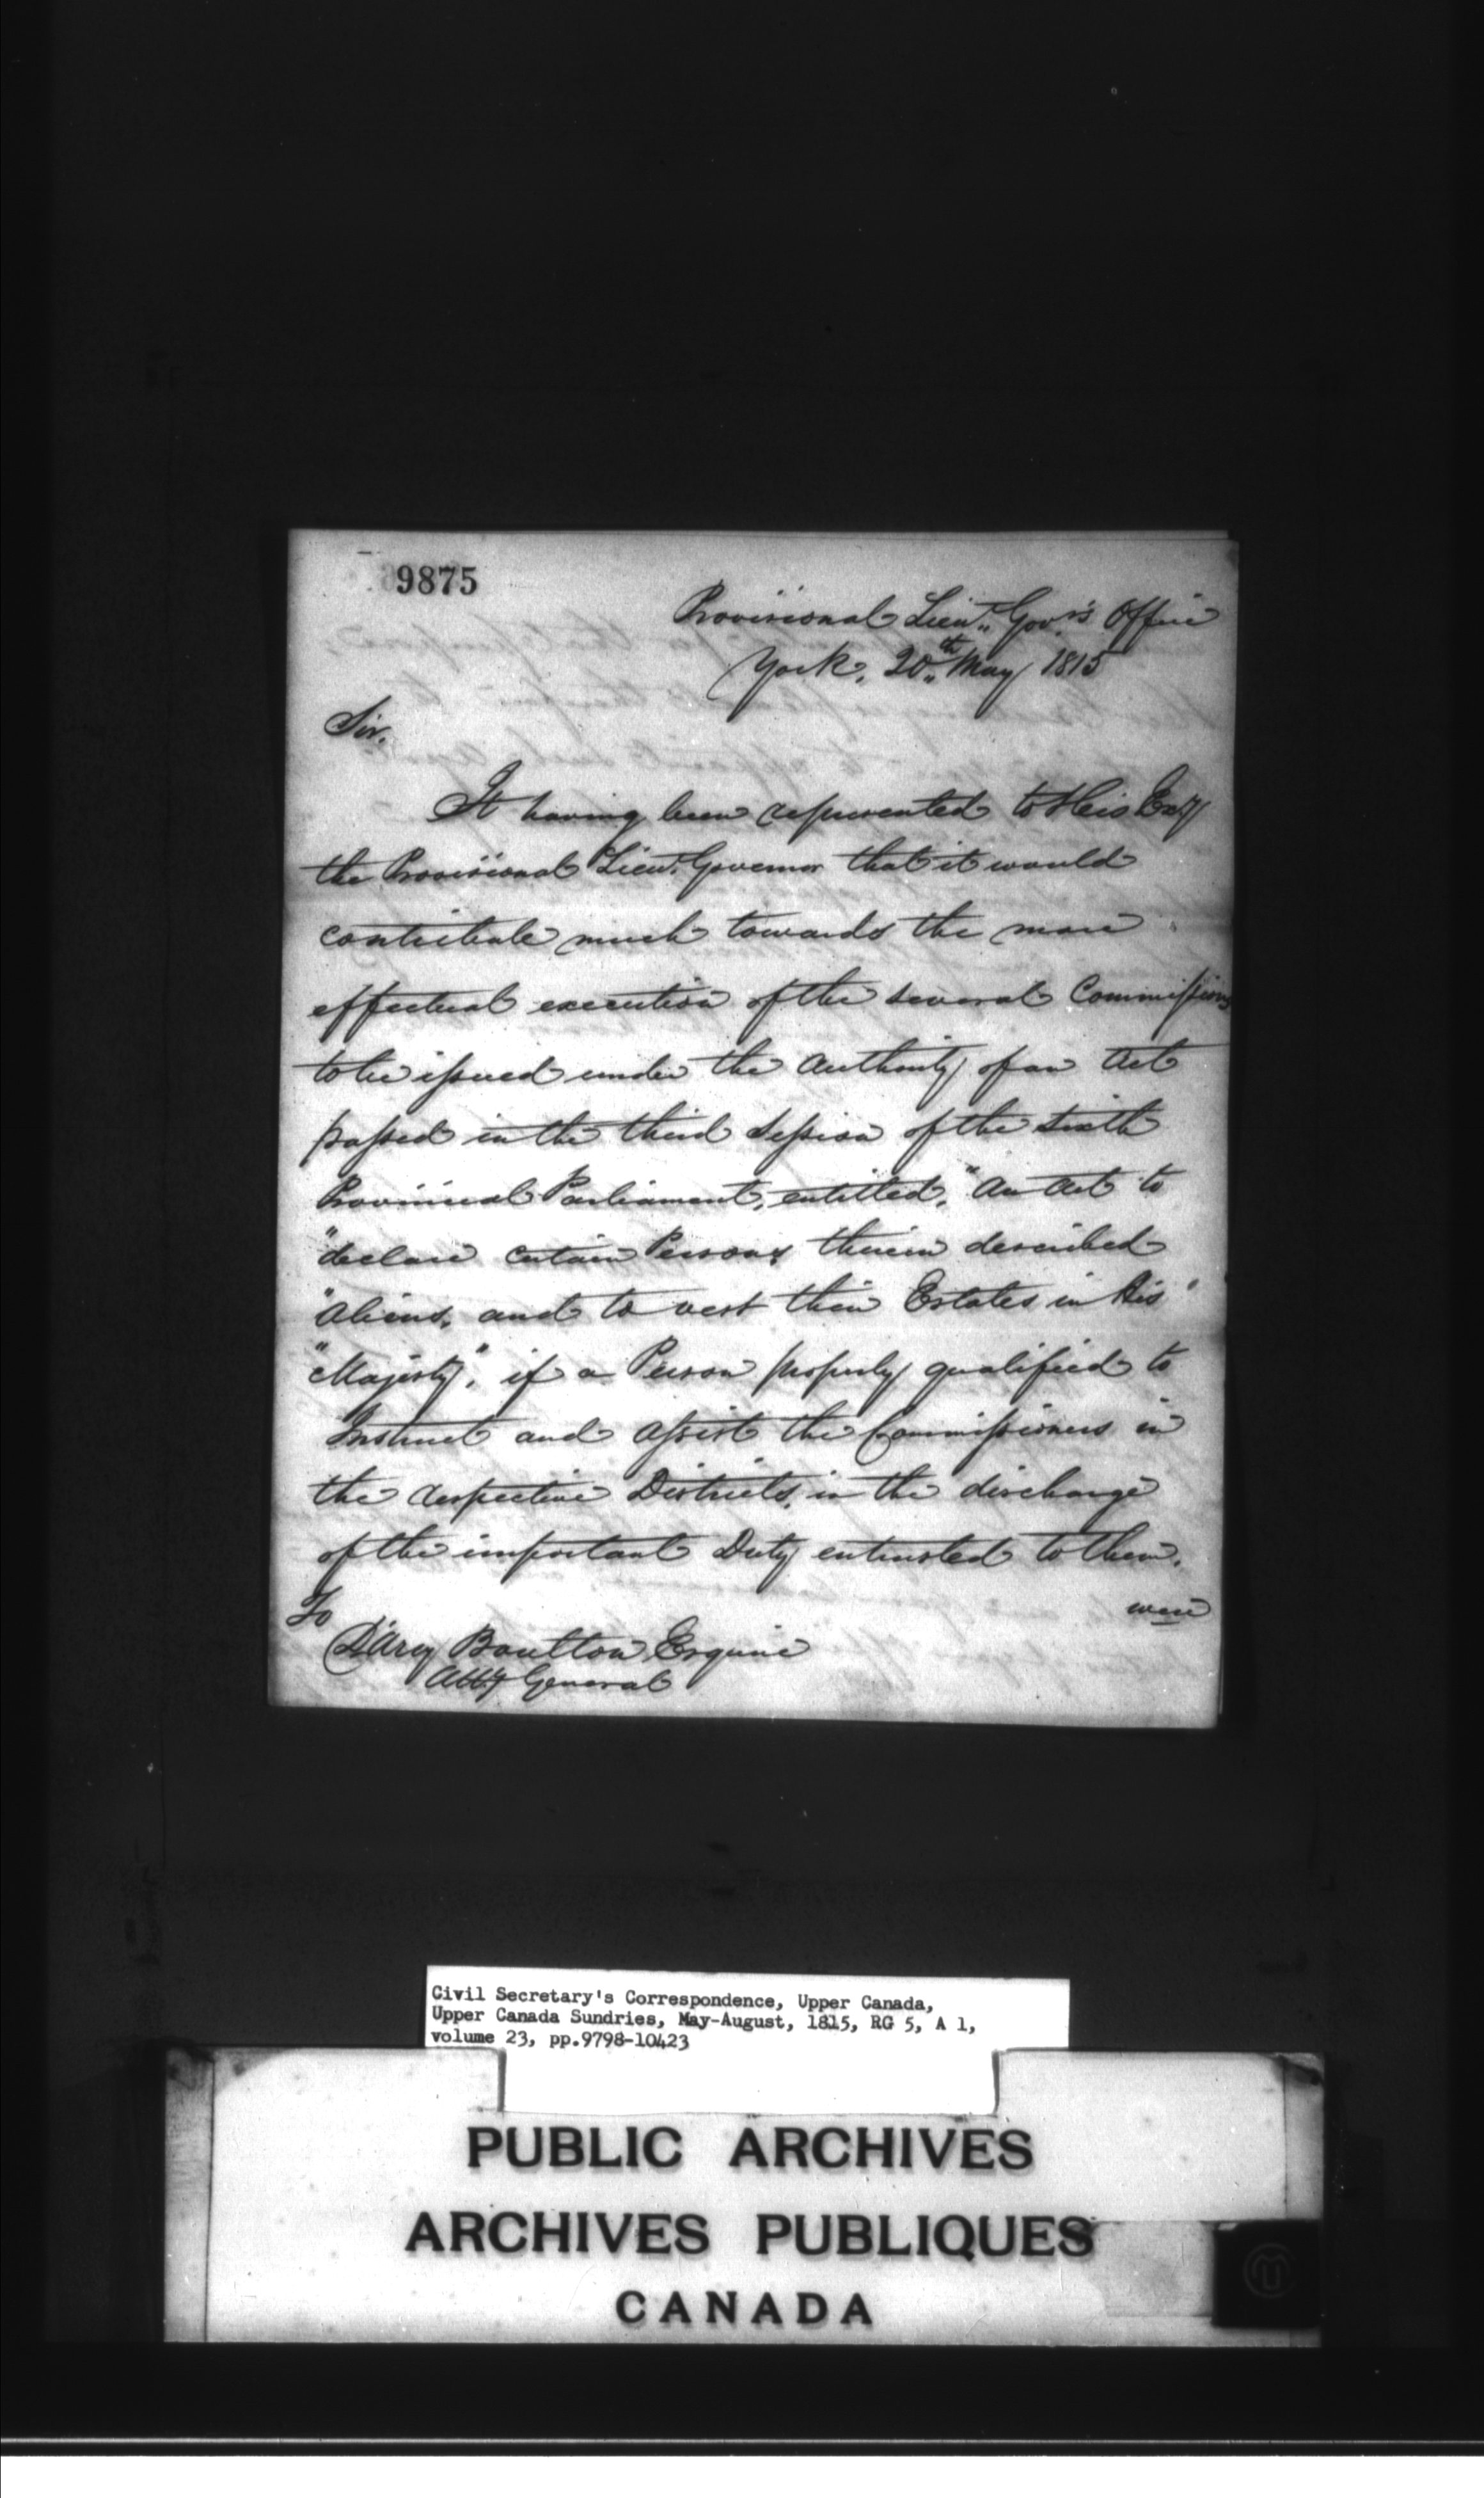 9875
Provisional Lieut. Gov's. Office
York, 20th May 1815
Sir.
It having been represented to His Excy
the Provisional Lieut. Governor that it would
contribute much towards the more
effectual execution of the several Commissions
to be issued under the Authority of an Act
passed in the third Session of the Sixth
Provincial Parliament, entitled, "An Act to
"declare certain Persons therein described
"Aliens, and to vest their Estates in His"
"Majesty", if a Person properly qualified to
Instruct and assist the Commissioners in
the respective Districts, in the discharge
of the important Duty entrusted to them.
were
To
D'Arcy Boulton Esquire
Atty General
Civil Secretary's Correspondence, Upper Canada,
Upper Canada Sundries, May-August, 1815, RG 5, A 1,
volume 23, pp.9798-10423
PUBLIC ARCHIVES
ARCHIVES PUBLIQUES
CANADA